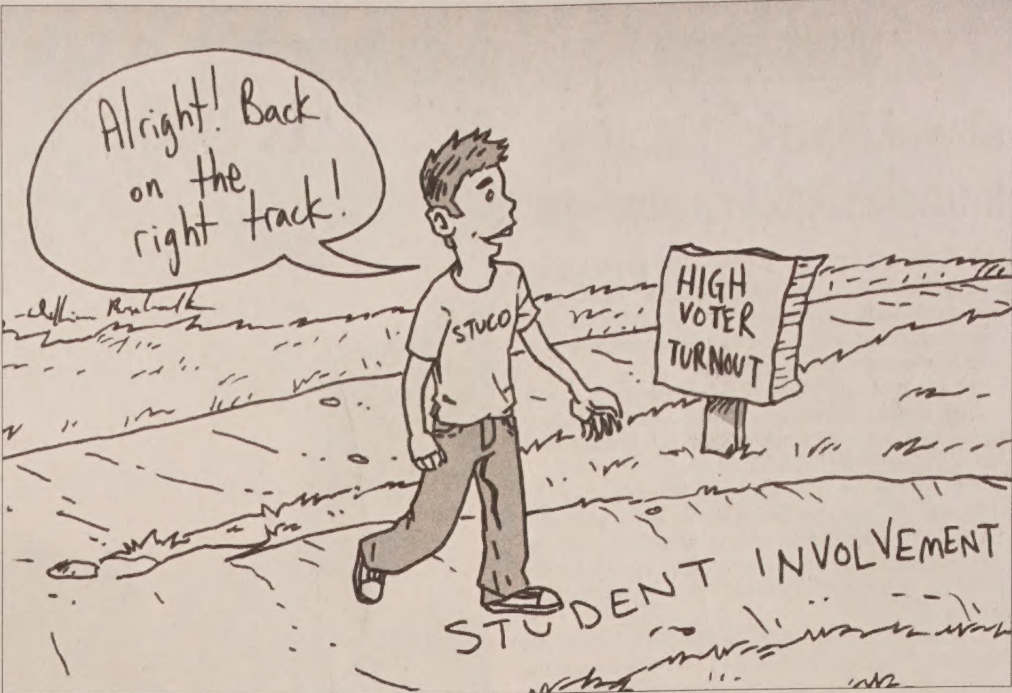 Alright! Back
on the
right track!
STUCO
HIGH
VOTER
TURNOUT
STUDENT INVOLVEMENT